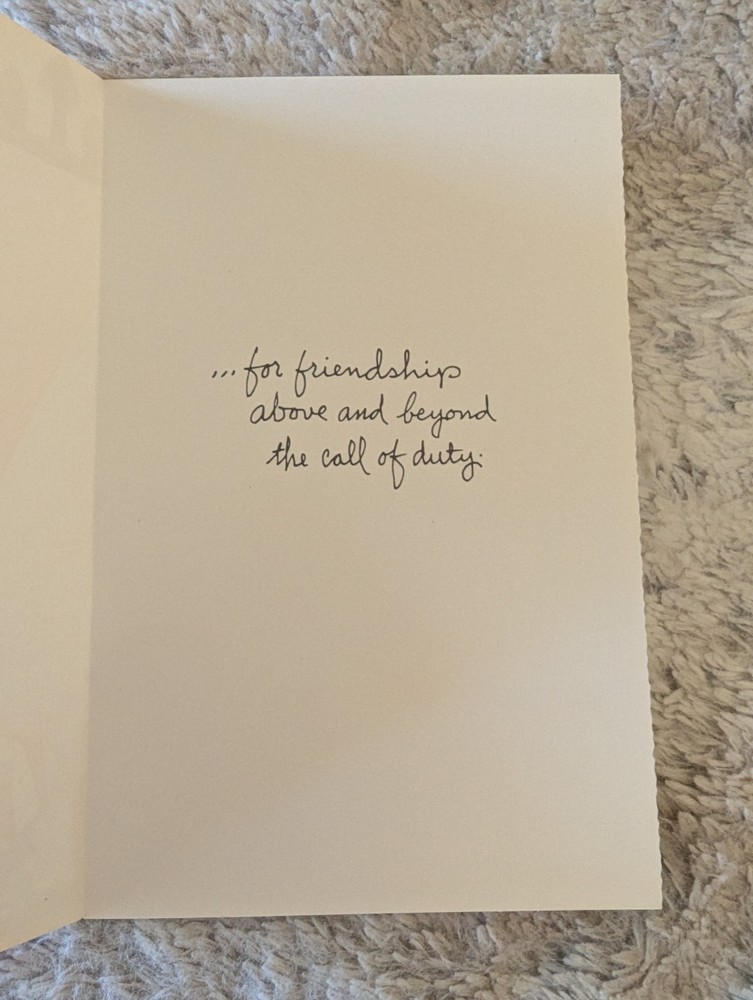 ...for friendship
above and beyond
the call of duty.